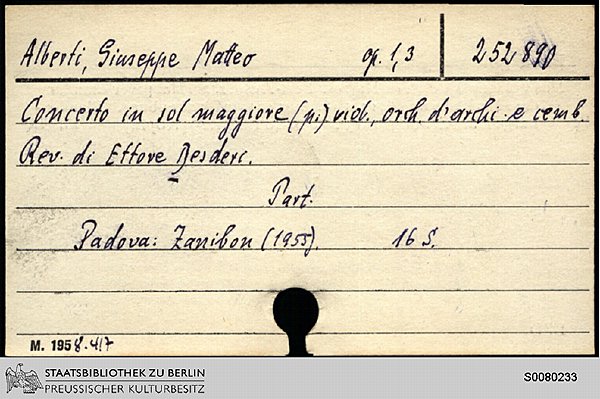 Alberti, Giuseppe Matteo op. 1,3 252890
Concerto in sol maggiore (p.) viol., orch. d'archi e cemb.
Rev. di Ettore Desderi.
Part.
Padova: Zanibon (1955). 16 S.
M. 1958.417
STAATSBIBLIOTHEK ZU BERLIN
PREUSSISCHER KULTURBESITZ
S0080233